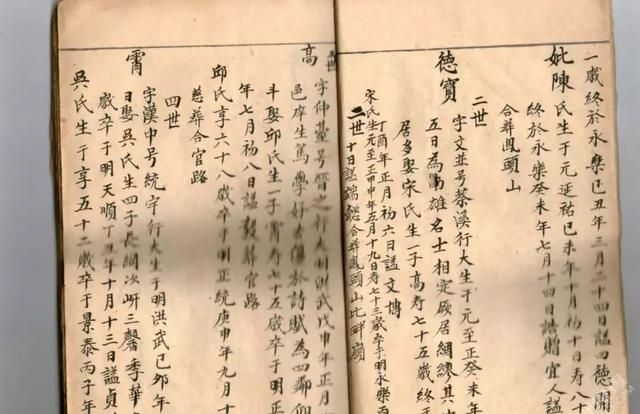 一歲終於永樂己丑年三月二十四日諡曰德聞
妣陳氏生于元延祐己未年十月初十日壽八十
終於永樂癸未年七月十四日誥贈宜人諡
合葬鳳頭山
二世
德寶
字文並号蔡溪行大生于元至正癸未年
五日為 雄名士相定厥居綢繆其
居多娶宋氏生一子高壽七十五歲終于
丁酉年正月初六日諡文博
宋氏生元至正甲申年五月十九日壽七十三歲卒于明永樂丙
二世十日諡端懿合葬鳳頭山比畔嶺
三世
高
字仲臺号晉之行大明洪武戊申年正月
邑庠生篤學好古優於詩賦為四鄰仰
斗娶邱氏生一子霄壽七十五歲卒于明正
年七月初八日諡 毅葬官路
邱氏享六十八歲卒于明正統庚申年九月十
慈葬合官路
四世
霄
字漢中号統宇行大生于明洪武己卯年
日娶吳氏生四子長闊次岍三馨季華
歲卒于明天順丁丑年十月十三日諡貞
吳氏生于享五十二歲卒于景泰丙子年